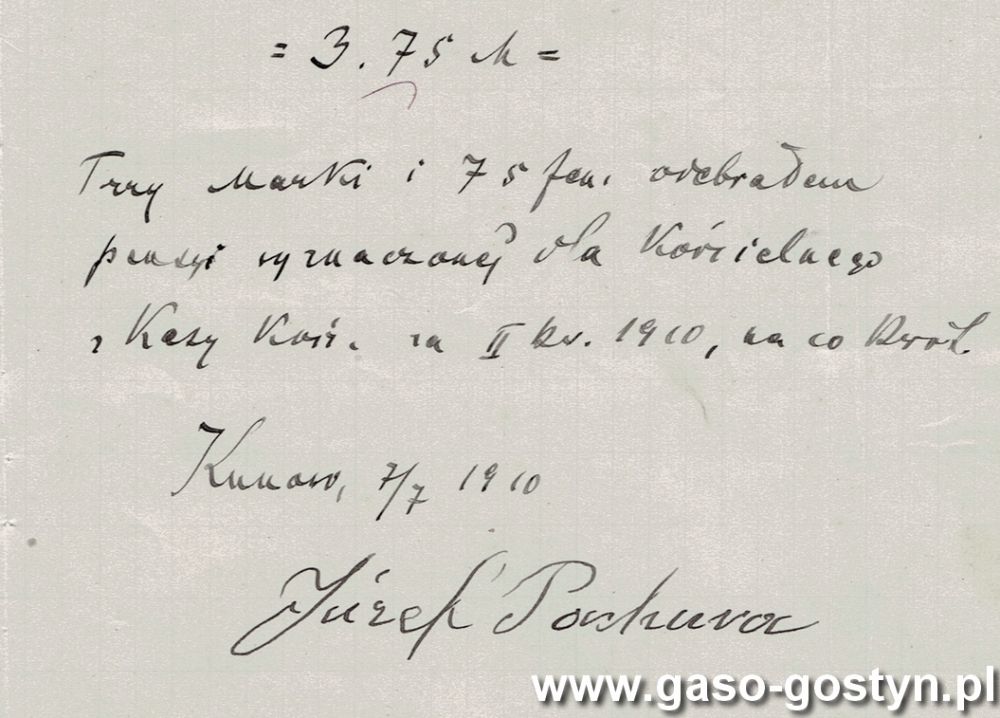 = 3.75 M =
Trzy Marki i 75 fen. odebrałem
pensyi wyznaczonej dla Kościelnego
z Kasy Kość. za II kw. 1910, na co kwit.
Kunowo, 7/7 1910
Józef Pachura
www.gaso-gostyn.pl